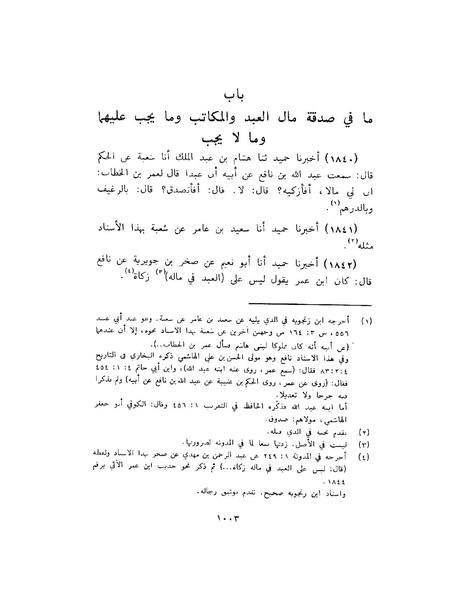 باب
ما في صدقة مال العبد والمكاتب وما يجب عليهما
وما لا يجب
(١٨٤٠) أخبرنا حميد ثنا هشام بن عبد الملك أنا شعبة عن الحكم
قال: سمعت عبد الله بن نافع عن أبيه أن عبدا قال لعمر بن الخطاب:
إن لي مالا، أفأزكيه؟ قال: لا. قال: أفأتصدق؟ قال: بالرغيف
وبالدرهم(١).
(١٨٤١) أخبرنا حميد أنا سعيد بن عامر عن شعبة بهذا الأسناد
مثله(٢).
(١٨٤٢) أخبرنا حميد أنا أبو نعيم عن صخر بن جويرية عن نافع
قال: كان ابن عمر يقول ليس على (العبد في ماله)(٣) زكاة(٤).
(١) أخرجه ابن زنجويه في الذي يليه عن سعيد بن عامر عن شعبة. وهو عند أبي عبيد
٥٥٦، س ٣: ١٦٤ من وجهين آخرين عن شعبة بهذا الاسناد نحوه، إلا أن عندهما
(عن أبيه أنه كان مملوكا لبني هاشم فسأل عمر بن الخطاب..).
وفي هذا الاسناد نافع وهو مولى الحسن بن علي الهاشمي ذكره البخاري في التاريخ
٤: ٢: ٨٣ فقال: (سمع عمر، روى عنه ابنه عبد الله)، وابن أبي حاتم ٤: ١: ٤٥٤
فقال: (روى عن عمر، روى الحكم بن عتيبة عن عبد الله بن نافع عن أبيه) ولم يذكرا
فيه جرحا ولا تعديلا.
أما ابنه عبد الله فذكره الحافظ في التقريب ١: ٤٥٦ وقال: الكوفي أبو جعفر
الهاشمي، مولاهم: صدوق.
(٢) تقدم بحثه في الذي قبله.
(٣) ليست في الأصل. زدتها تبعا لما في المدونة لضرورتها.
(٤) أخرجه في المدونة ١: ٢٤٩ عن عبد الرحمن بن مهدي عن صخر بهذا الاسناد ولفظه
(قال: ليس على العبد في ماله زكاة...) ثم ذكر نحو حديث ابن عمر الآتي برقم
١٨٤٤.
واسناد ابن زنجويه صحيح. تقدم توثيق رجاله.
١٠٠٣